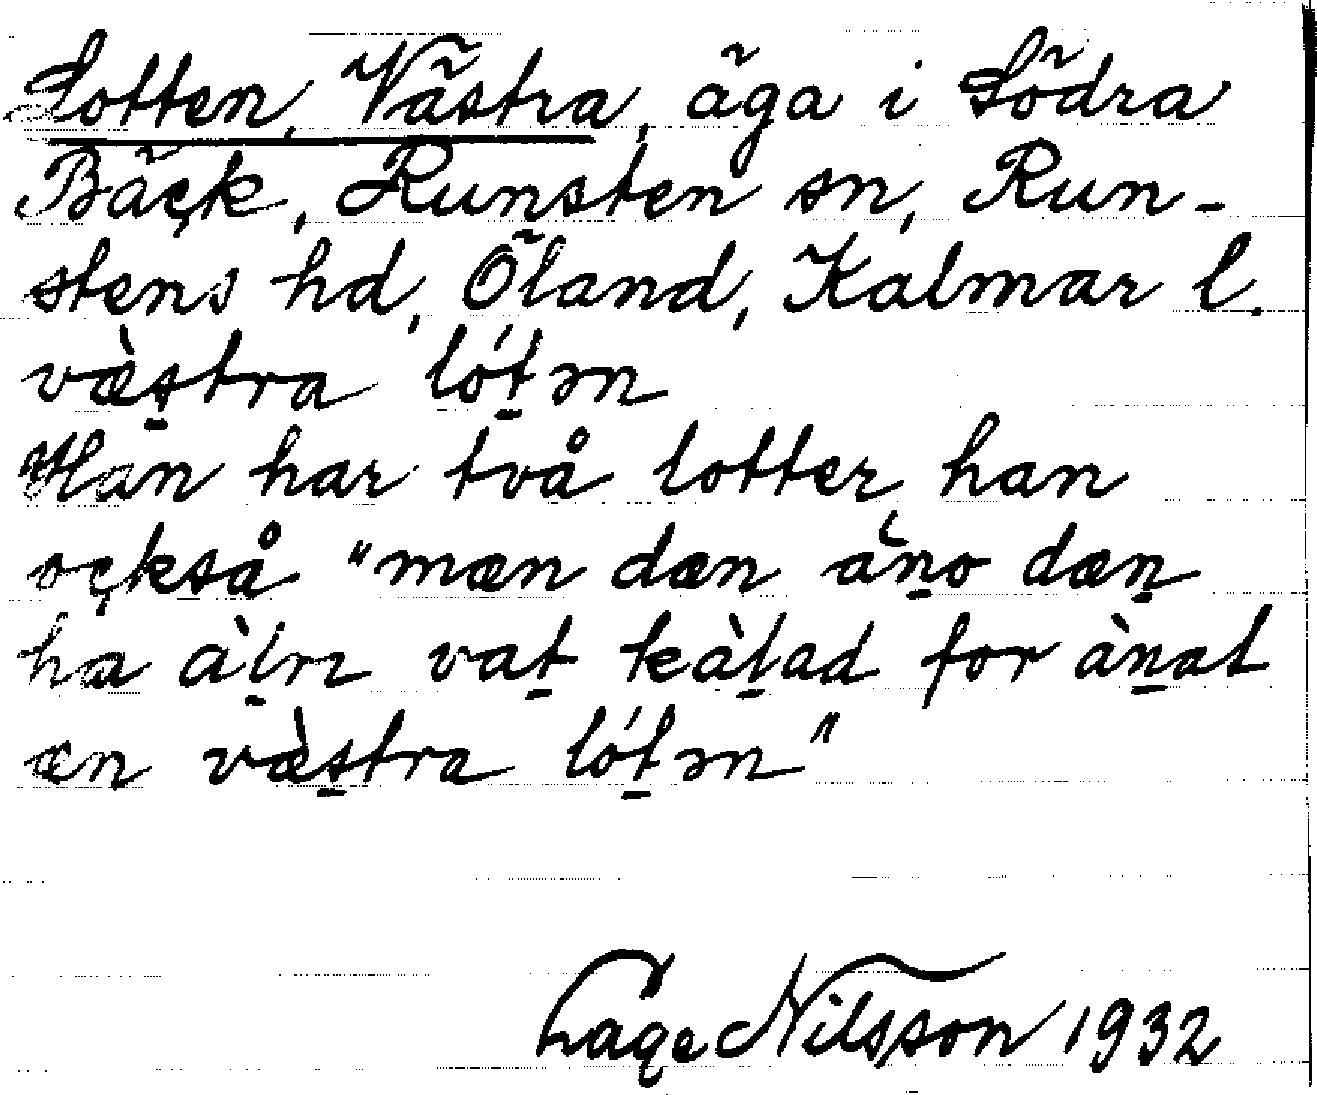 Lotten, Västra, äga i Södra
Bäck, Runsten sn, Run-
stens hd, Öland, Kalmar l.
væ̀s̲tra lót̲ən
Han har två lotter, han
också "mæn dæn àn̲o dæn̲
ha àl̲rɩ vat̲ kàl̲ad for àn̲at
æn væ̀s̲tra lót̲ən"
Nilsson 1932